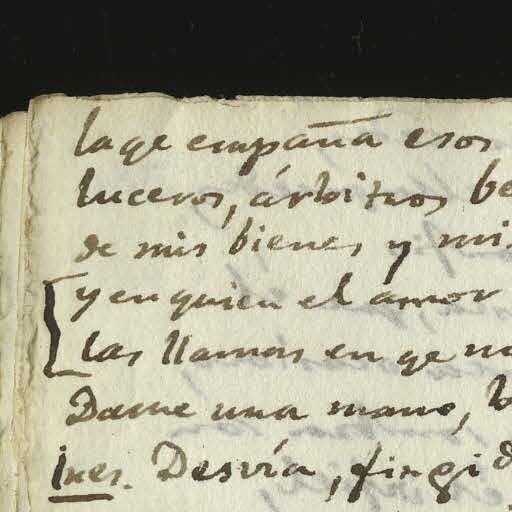 la qe empaña esos
luceros, árbitros be
de mis bienes y mis
y en quien el amor
las llamas en qe
Dame una mano,
Ines. Desvía, fingid